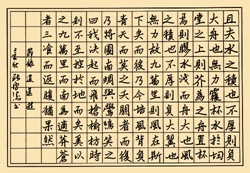 且夫水之積也不厚則負
大舟也無力覆杯水於坳
堂之上則芥為之舟置杯
焉則膠水淺而舟大也風
之積也不厚則其負大翼也
無力故九萬里則風斯在
下矣而後乃今培風背負
青天而莫之夭閼者而後
乃今將圖南蜩與鷽鳩笑之
曰我決起而飛槍榆枋時
則不至而控於地而已矣奚以
之九萬里而南為適莽蒼
者三食而反腹猶果然
逍遙遊